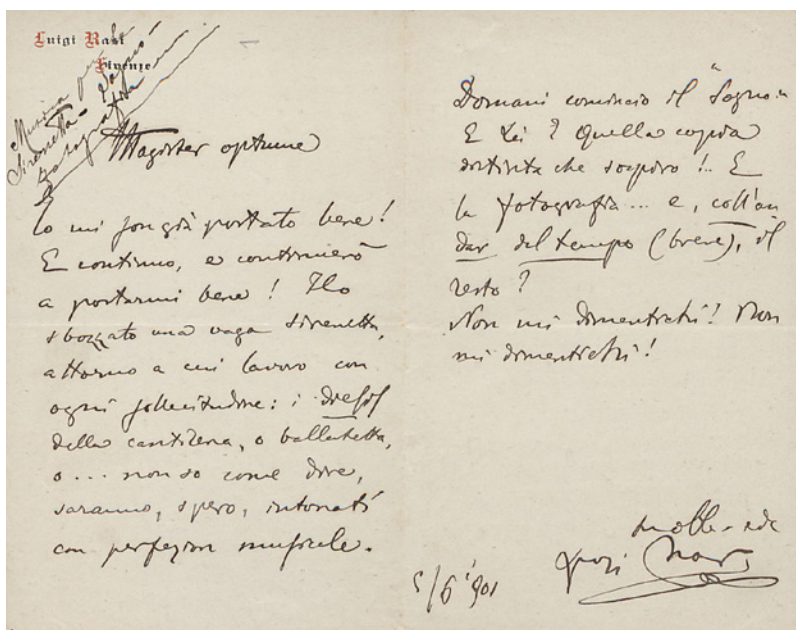 Luigi Rasi
Firenze
Musica per la
Sirenetta - Sogno
fotografia
Magister optume
Io mi son già portato bene!
E continuo, e continuerò
a portarmi bene! Ho
sbozzato una vaga sirenetta,
attorno a cui lavoro con
ogni sollecitudine: i diesis
della cantilena, o ballatetta,
o... non so come dire,
saranno, spero, intonati
con perfezion musicale.
Domani comincio il "Sogno"
E Lei? Quella copia
distinta che sospiro!.. E
la fotografia... e, coll'an
dar del tempo (breve), il
resto?
Non mi dimentichi! Non
mi dimentichi!
Luigi Rasi
5/6 '901